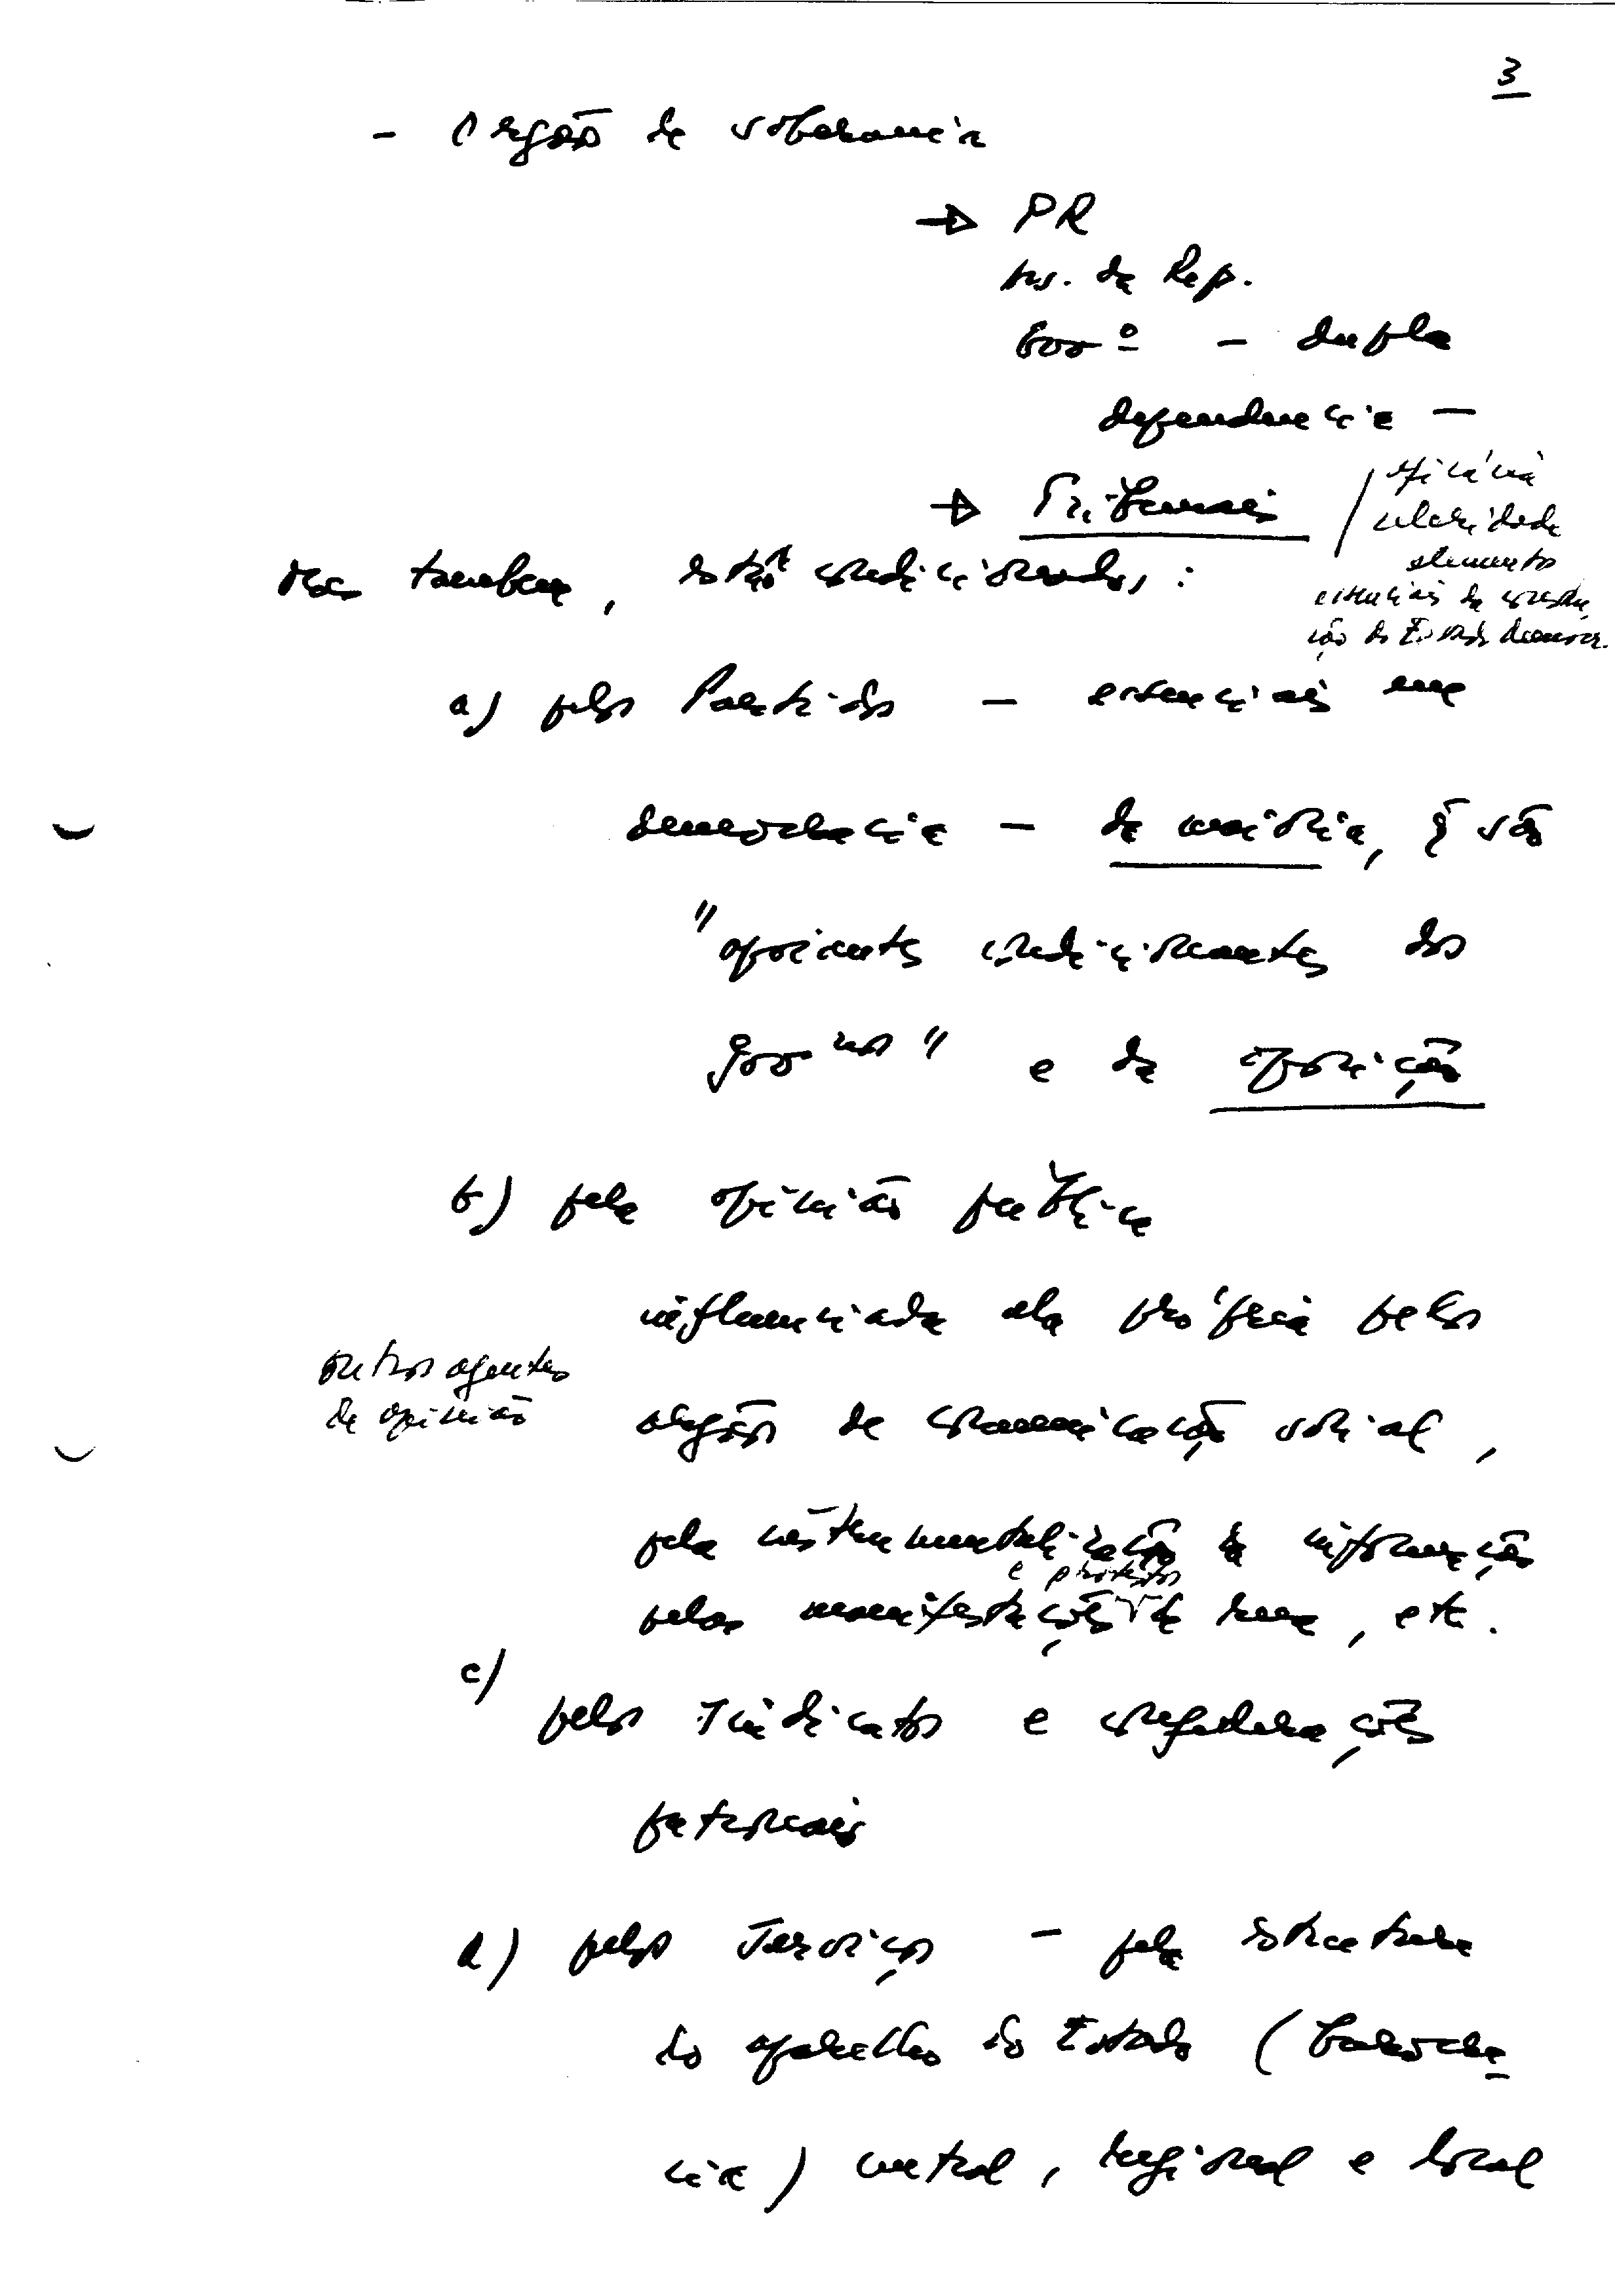 3
- Orgãos de soberania
→ PR
Ass. da Rep.
Govº - dupla
dependencia -
→ Tribunais
/ eficácia
celeridade
elementos
essenciais da
ção do Estado democr.
mas tambem, estão condicionados:
a) pelos Partidos - essenciais em
democracia - da maioria, q̃ são
"apoiantes condicionantes dos
governos" e da oposição
b) pela opinião publica
influenciada ela própria pelos
outros agentes
de opinião
orgãos de comunicação social,
pela instrumentalização da informação
e protestos
pelas manifestações de rua, etc.
c)
pelos Sindicatos e confederações
patronais
d) pelos Serviços - pela estrutura
do aparelho do Estado (burocra
cia) central, regional e local